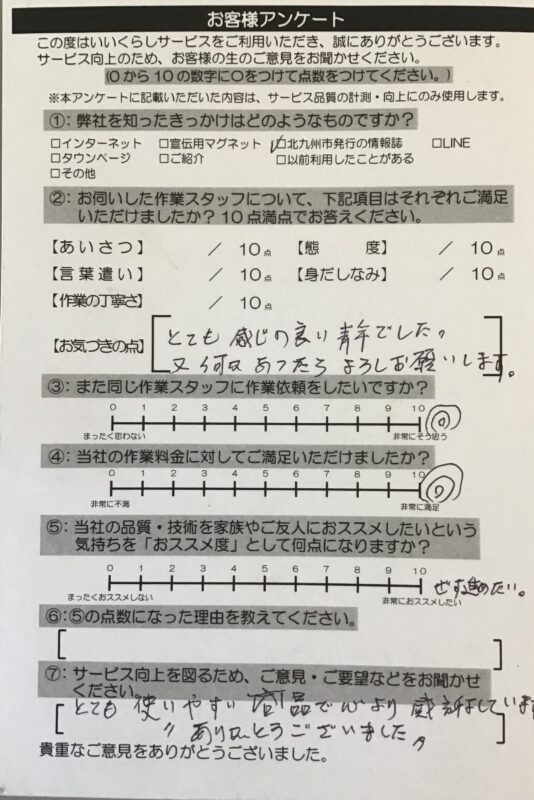 お客様アンケート
この度はいいくらしサービスをご利用いただき、誠にありがとうございます。
サービス向上のため、お客様の生のご意見をお聞かせください。
(0から10の数字に○をつけて点数をつけてください。)
※本アンケートに記載いただいた内容は、サービス品質の計測・向上にのみ使用します。
①：弊社を知ったきっかけはどのようなものですか？
□インターネット □宣伝用マグネット ☑北九州市発行の情報誌 □LINE
□タウンページ □ご紹介 □以前利用したことがある
□その他
②：お伺いした作業スタッフについて、下記項目はそれぞれご満足
いただけましたか？10点満点でお答えください。
【あいさつ】 ／ 10点 【態度】 ／ 10点
【言葉遣い】 ／ 10点 【身だしなみ】 ／ 10点
【作業の丁寧さ】 ／ 10点
【お気づきの点】
とても感じの良い青年でした。
又何かあったらよろしお願いします。
③：また同じ作業スタッフに作業依頼をしたいですか？
0 1 2 3 4 5 6 7 8 9 10
まったく思わない 非常にそう思う
④：当社の作業料金に対してご満足いただけましたか？
0 1 2 3 4 5 6 7 8 9 10
非常に不満 非常に満足
⑤：当社の品質・技術を家族やご友人におススメしたいという
気持ちを「おススメ度」として何点になりますか？
0 1 2 3 4 5 6 7 8 9 10
まったくおススメしない 非常におススメしたい ぜひ進めたい。
⑥：⑤の点数になった理由を教えてください。
⑦：サービス向上を図るため、ご意見・ご要望などをお聞かせ
ください。
とても使いやすい商品で心より感謝しています
ありがとうございました。
貴重なご意見をありがとうございました。